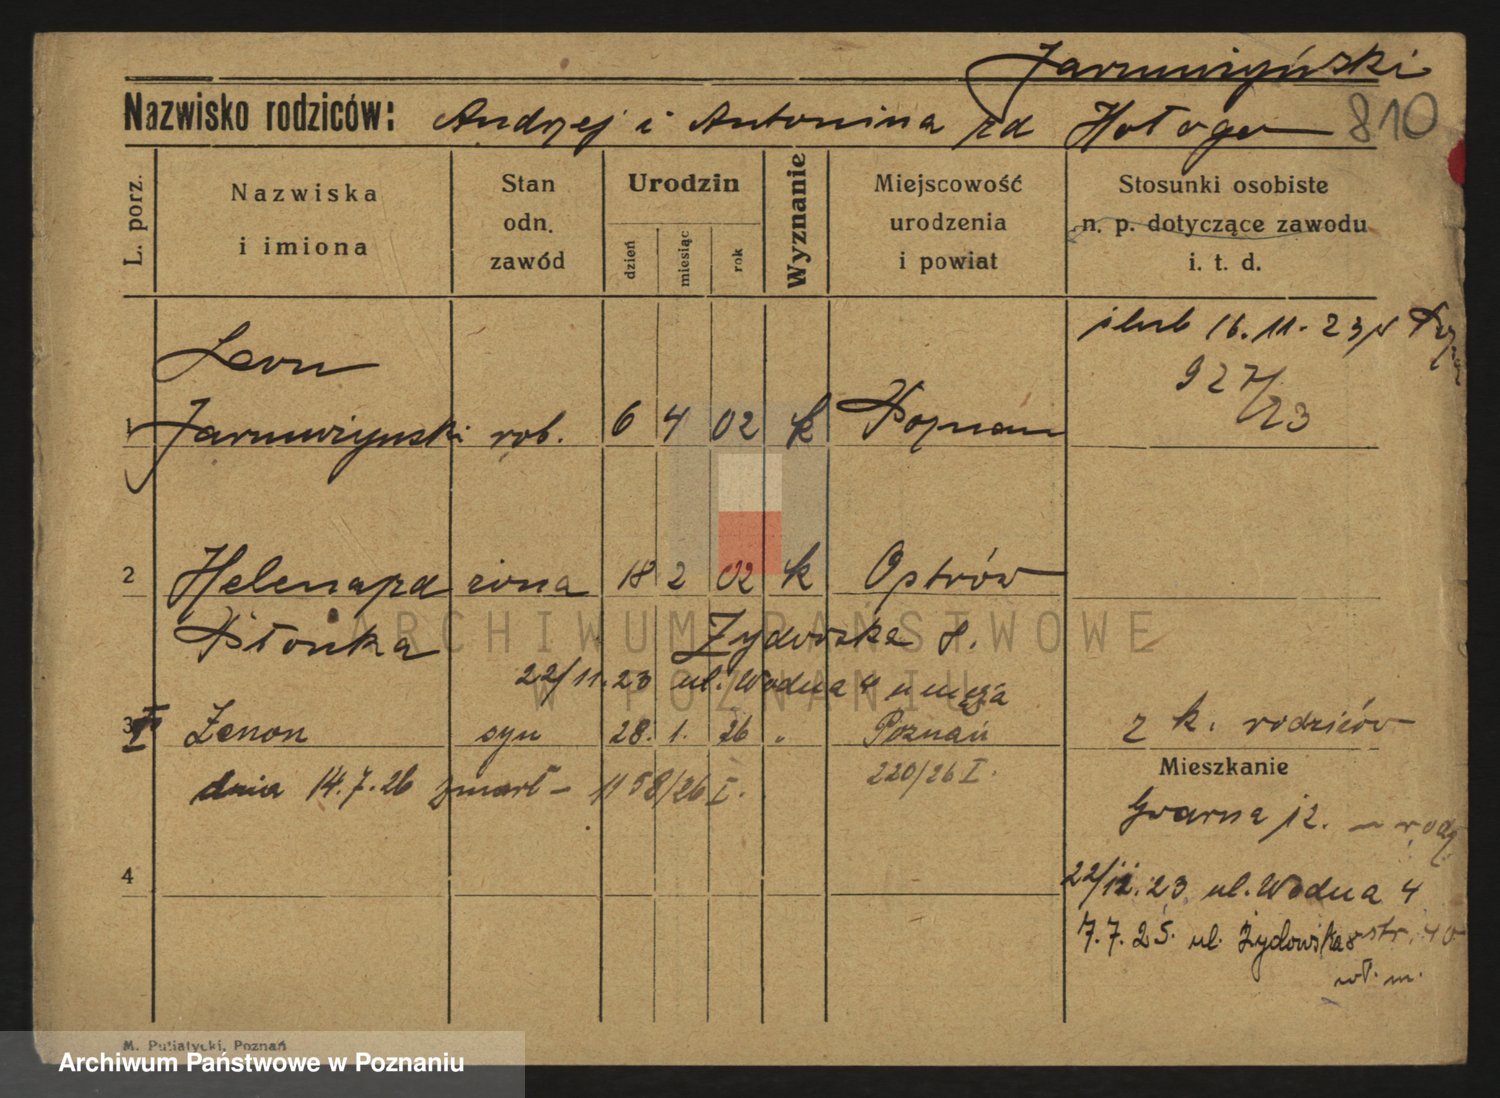 Jarmużyński
Nazwisko rodziców: Andrzej i Antonina zd Hołoga 810
L. porz.
Nazwiska
i imiona
Stan
odn.
zawód
Urodzin
dzień
miesiąc
rok
Wyznanie
Miejscowość
urodzenia
i powiat
Stosunki osobiste
n. p. dotyczące zawodu
i. t. d.
ślub 16. 11. 23
927/23
Leon
1 rob. 6 4 02 k Poznań
2 Helena zd żona 18 2 02 k Ostrów
Płonka Żydowska 8.
22/11.23 ul. Wodna 4 u męża
3 Zenon syn 28. 1. 26 „ Poznań z k. rodziców
dnia 14.7.26 zmarł – 1158/26 I. 220/26 I.
Mieszkanie
Gwarna 12. – rodz
4
22/11.23 ul. Wodna 4
7.7.25. ul. Żydowska 8 str. 40
wł. m.
M. Putiatycki, Poznań
ARCHIWUM PAŃSTWOWE
W POZNANIU
Archiwum Państwowe w Poznaniu